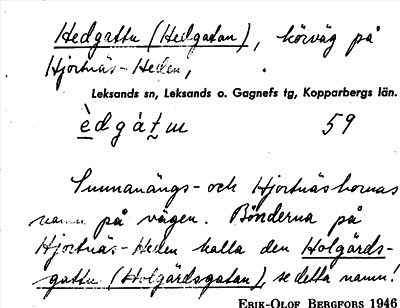 Hedgattu (Hedgatan), körväg på
Hjortnäs-Heden,
Leksands sn, Leksands o. Gagnefs tg, Kopparbergs län.
èdgát̬ɯ 59
Sunnanängs- och Hjortnäsbornas
namn på vägen. Bönderna på
Hjortnäs-Heden kalla den Holgårds-
gattu (Holgårdsgatan), se detta namn!
ERIK-OLOF BERGFORS 1946